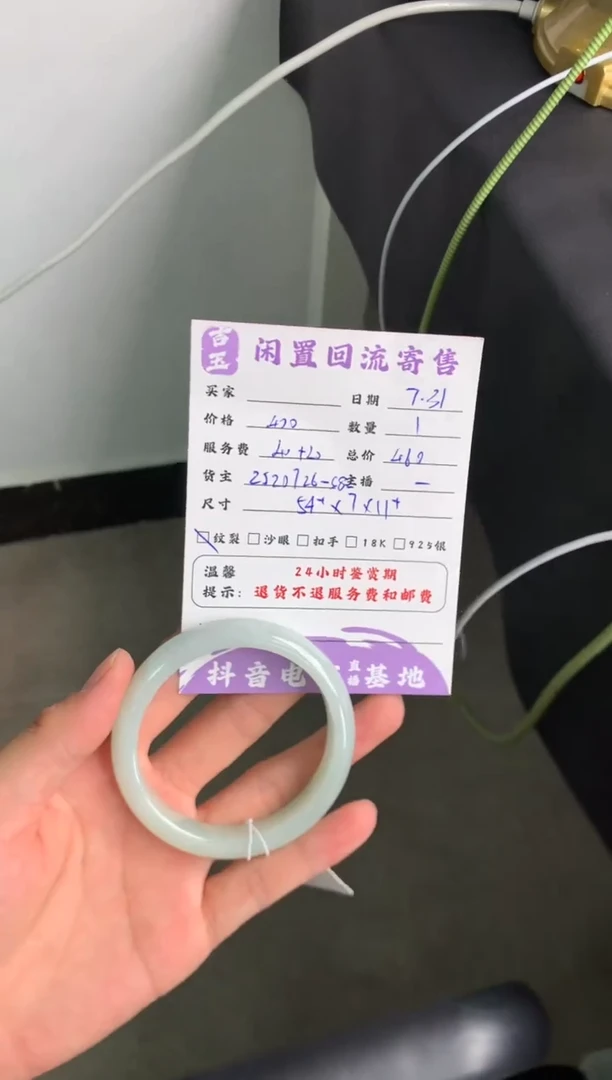 吉玉 闲置回流寄售
买家 日期 7.31
价格 400 数量 1
服务费 40+20 总价 460
货主 2520726-58 主播 —
尺寸 54⁺×7×11⁺
纹裂 沙眼 扣手 18K 925银
温馨 24小时鉴赏期
提示: 退货不退服务费和邮费
抖音电 直播基地